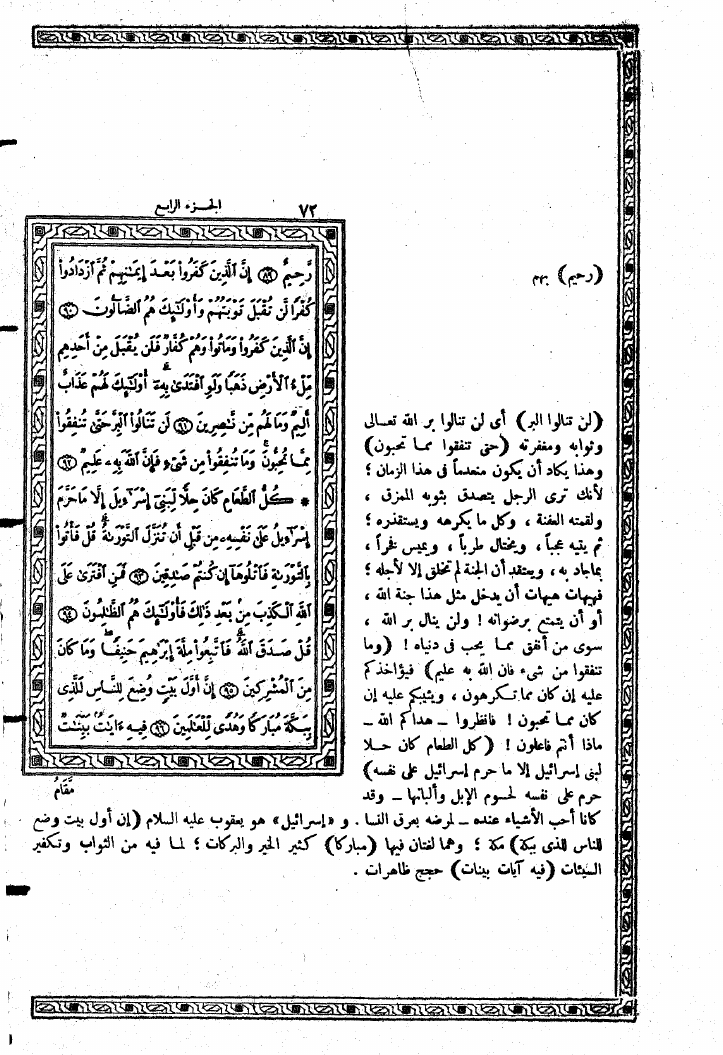 ٧٢
الجزء الرابع
رَّحِيمٌ ﴿٨٩﴾ إِنَّ ٱلَّذِينَ كَفَرُوا۟ بَعْدَ إِيمَـٰنِهِمْ ثُمَّ ٱزْدَادُوا۟
كُفْرًا لَّن تُقْبَلَ تَوْبَتُهُمْ وَأُو۟لَـٰٓئِكَ هُمُ ٱلضَّآلُّونَ ﴿٩٠﴾
إِنَّ ٱلَّذِينَ كَفَرُوا۟ وَمَاتُوا۟ وَهُمْ كُفَّارٌ فَلَن يُقْبَلَ مِنْ أَحَدِهِم
مِّلْءُ ٱلْأَرْضِ ذَهَبًا وَلَوِ ٱفْتَدَىٰ بِهِۦٓ ۗ أُو۟لَـٰٓئِكَ لَهُمْ عَذَابٌ
أَلِيمٌ وَمَا لَهُم مِّن نَّـٰصِرِينَ ﴿٩١﴾ لَن تَنَالُوا۟ ٱلْبِرَّ حَتَّىٰ تُنفِقُوا۟
مِمَّا تُحِبُّونَ ۚ وَمَا تُنفِقُوا۟ مِن شَىْءٍ فَإِنَّ ٱللَّهَ بِهِۦ عَلِيمٌ ﴿٩٢﴾
* كُلُّ ٱلطَّعَامِ كَانَ حِلًّا لِّبَنِىٓ إِسْرَٰٓءِيلَ إِلَّا مَا حَرَّمَ
إِسْرَٰٓءِيلُ عَلَىٰ نَفْسِهِۦ مِن قَبْلِ أَن تُنَزَّلَ ٱلتَّوْرَىٰةُ ۗ قُلْ فَأْتُوا۟
بِٱلتَّوْرَىٰةِ فَٱتْلُوهَآ إِن كُنتُمْ صَـٰدِقِينَ ﴿٩٣﴾ فَمَنِ ٱفْتَرَىٰ عَلَى
ٱللَّهِ ٱلْكَذِبَ مِنۢ بَعْدِ ذَٰلِكَ فَأُو۟لَـٰٓئِكَ هُمُ ٱلظَّـٰلِمُونَ ﴿٩٤﴾
قُلْ صَدَقَ ٱللَّهُ ۗ فَٱتَّبِعُوا۟ مِلَّةَ إِبْرَٰهِيمَ حَنِيفًا ۖ وَمَا كَانَ
مِنَ ٱلْمُشْرِكِينَ ﴿٩٥﴾ إِنَّ أَوَّلَ بَيْتٍ وُضِعَ لِلنَّاسِ لَلَّذِى
بِبَكَّةَ مُبَارَكًا وَهُدًى لِّلْعَـٰلَمِينَ ﴿٩٦﴾ فِيهِ ءَايَـٰتٌۢ بَيِّنَـٰتٌ
مَّقَامُ
(رحيم) بهم
(لن تنالوا البر) أى لن تنالوا بر الله تعالى
وثوابه ومغفرته (حتى تنفقوا مما تحبون)
وهذا يكاد أن يكون منعدماً فى هذا الزمان ؛
لأنك ترى الرجل يتصدق بثوبه الممزق ،
ولقمته العفنة ، وكل ما يكرهه ويستقذره ؛
ثم يتيه عجباً ، ويختال طرباً ، ويميس فخراً ،
بما جاد به ، ويعتقد أن الجنة لم تخلق إلا لأجله ؛
فهيهات هيهات أن يدخل مثل هذا جنة الله ،
أو أن يتمتع برضوانه ! ولن ينال بر الله ،
سوى من أنفق مما يحب فى دنياه ! (وما
تنفقوا من شىء فان الله به عليم) فيؤاخذكم
عليه إن كان مما تكرهون ، ويثيبكم عليه إن
كان مما تحبون ! فانظروا ــ هداكم الله ــ
ماذا أنتم فاعلون ! (كل الطعام كان حلا
لبنى إسرائيل إلا ما حرم إسرائيل على نفسه)
حرم على نفسه لحوم الإبل وألبانها ــ وقد
كانا أحب الأشياء عنده ــ لمرضه بعرق النسا . و «إسرائيل» هو يعقوب عليه السلام (إن أول بيت وضع
للناس للذى ببكة) مكة ؛ وهما لغتان فيها (مباركا) كثير الخير والبركات ؛ لما فيه من الثواب وتكفير
السيئات (فيه آيات بينات) حجج ظاهرات .